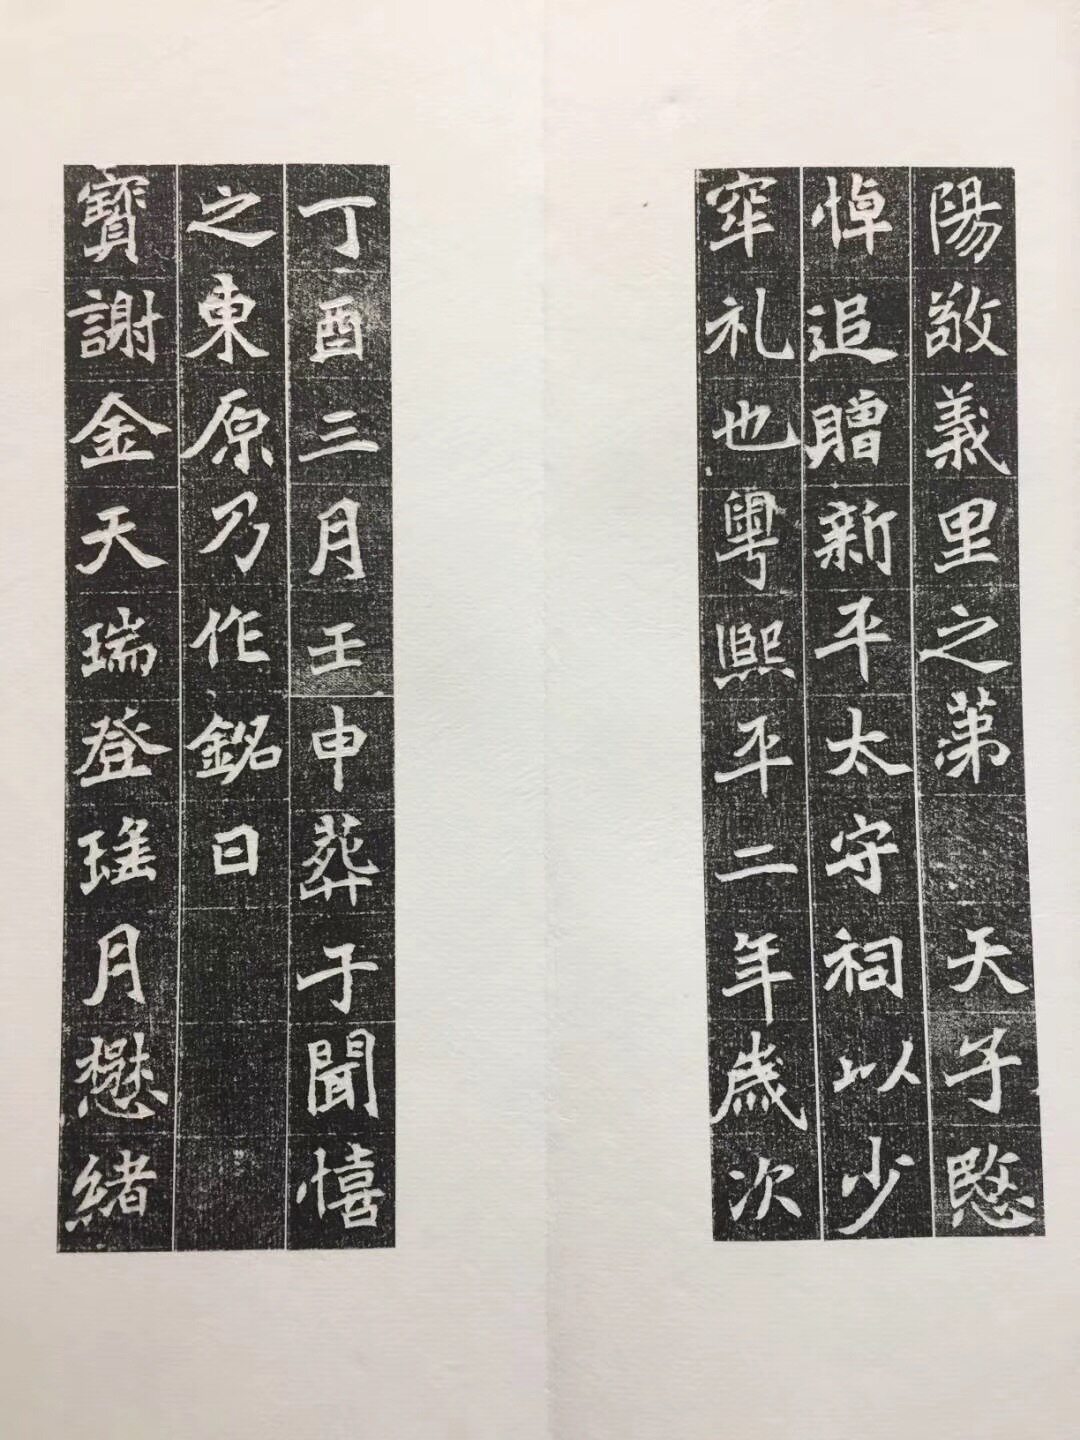 陽敬義里之第　天子愍
悼追贈新平太守祠以少
窂礼也粤熈平二年歲次
丁酉三月壬申葬于聞憘
之東原乃作銘曰
寳謝金天瑞登瑤月懋緒